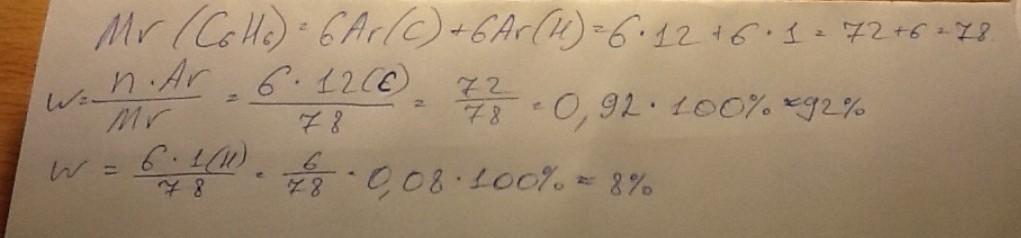 Mr (C6H6) = 6Ar(C) + 6Ar(H) = 6 · 12 + 6 · 1 = 72 + 6 = 78.
w = n · Ar / Mr = 6 · 12(C) / 78 = 72 / 78 = 0,92 · 100% ≈ 92%
w = 6 · 1(H) / 78 = 6 / 78 = 0,08 · 100% = 8%